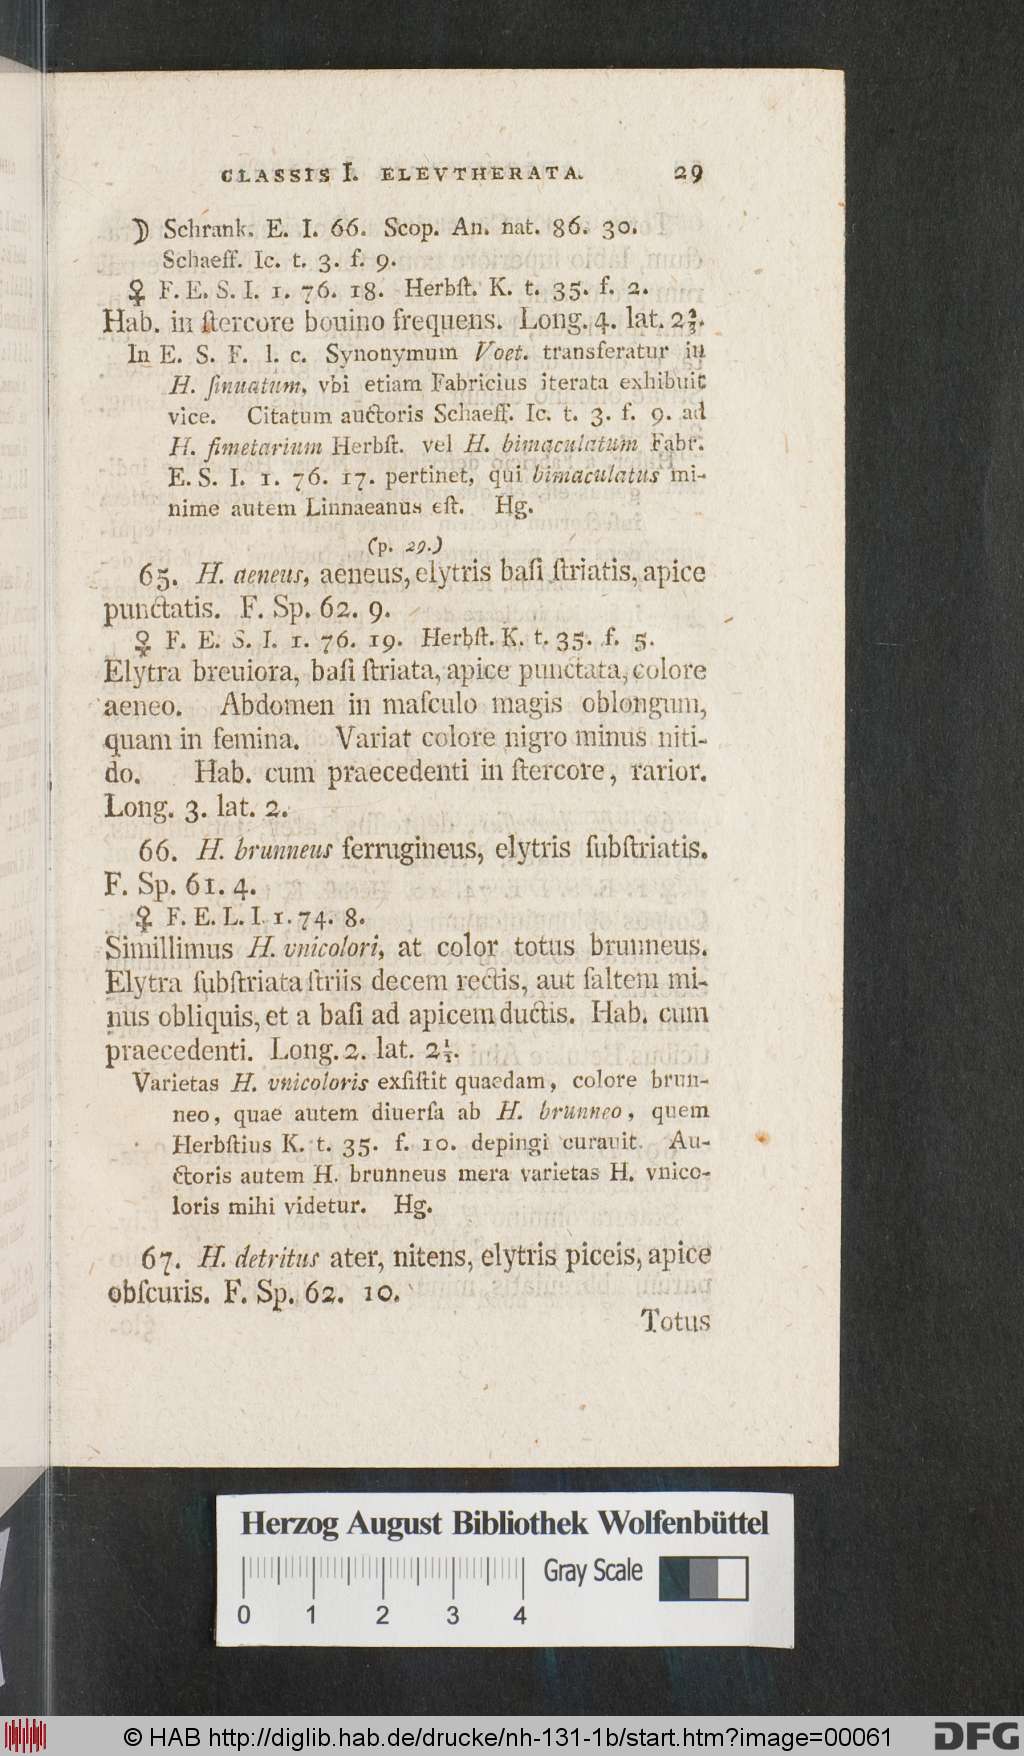 CLASSIS I. ELEVTHERATA. 29
☽ Schrank. E. I. 66. Scop. An. nat. 86. 30.
Schaeff. Ic. t. 3. f. 9.
♀ F. E. S. I. 1. 76. 18. Herbſt. K. t. 35. f. 2.
Hab. in ſtercore bouino frequens. Long. 4. lat. 2⅔.
In E. S. F. l. c. Synonymum Voet. transferatur in
H. ſinuatum, vbi etiam Fabricius iterata exhibuit
vice. Citatum auctoris Schaeff. Ic. t. 3. f. 9. ad
H. fimetarium Herbſt. vel H. bimaculatum Fabr.
E. S. I. 1. 76. 17. pertinet, qui bimaculatus mi-
nime autem Linnaeanus eſt. Hg.
(p. 29.)
65. H. aeneus, aeneus, elytris baſi ſtriatis, apice
punctatis. F. Sp. 62. 9.
♀ F. E. S. I. 1. 76. 19. Herbſt. K. t. 35. f. 5.
Elytra breuiora, baſi ſtriata, apice punctata, colore
aeneo. Abdomen in maſculo magis oblongum,
quam in femina. Variat colore nigro minus niti-
do. Hab. cum praecedenti in ſtercore, rarior.
Long. 3. lat. 2.
66. H. brunneus ferrugineus, elytris ſubſtriatis.
F. Sp. 61. 4.
♀ F. E. L. I. 1. 74. 8.
Simillimus H. vnicolori, at color totus brunneus.
Elytra ſubſtriata ſtriis decem rectis, aut ſaltem mi-
nus obliquis, et a baſi ad apicem ductis. Hab. cum
praecedenti. Long. 2. lat. 2
Varietas H. vnicoloris exſiſtit quaedam, colore brun-
neo, quae autem diuerſa ab H. brunneo, quem
Herbſtius K. t. 35. f. 10. depingi curauit. Au-
ctoris autem H. brunneus mera varietas H. vnico-
loris mihi videtur. Hg.
67. H. detritus ater, nitens, elytris piceis, apice
obſcuris. F. Sp. 62. 10.
Totus
Herzog August Bibliothek Wolfenbüttel
Gray Scale
0 1 2 3 4
© HAB http://diglib.hab.de/drucke/nh-131-1b/start.htm?image=00061
DFG